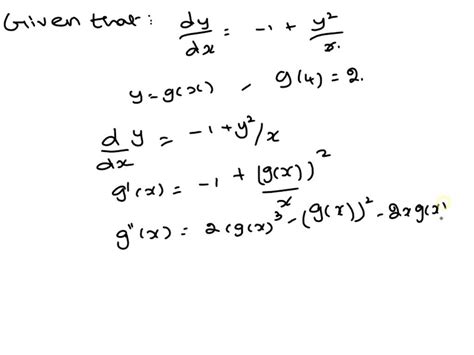 Given that: dy/dx = -1 + y²/x.
y = g(x) , g(4) = 2.
d/dx y = -1 + y²/x
g'(x) = -1 + (g(x))²/x
g"(x) = 2(g(x)³ - (g(x))² - 2x g(x)